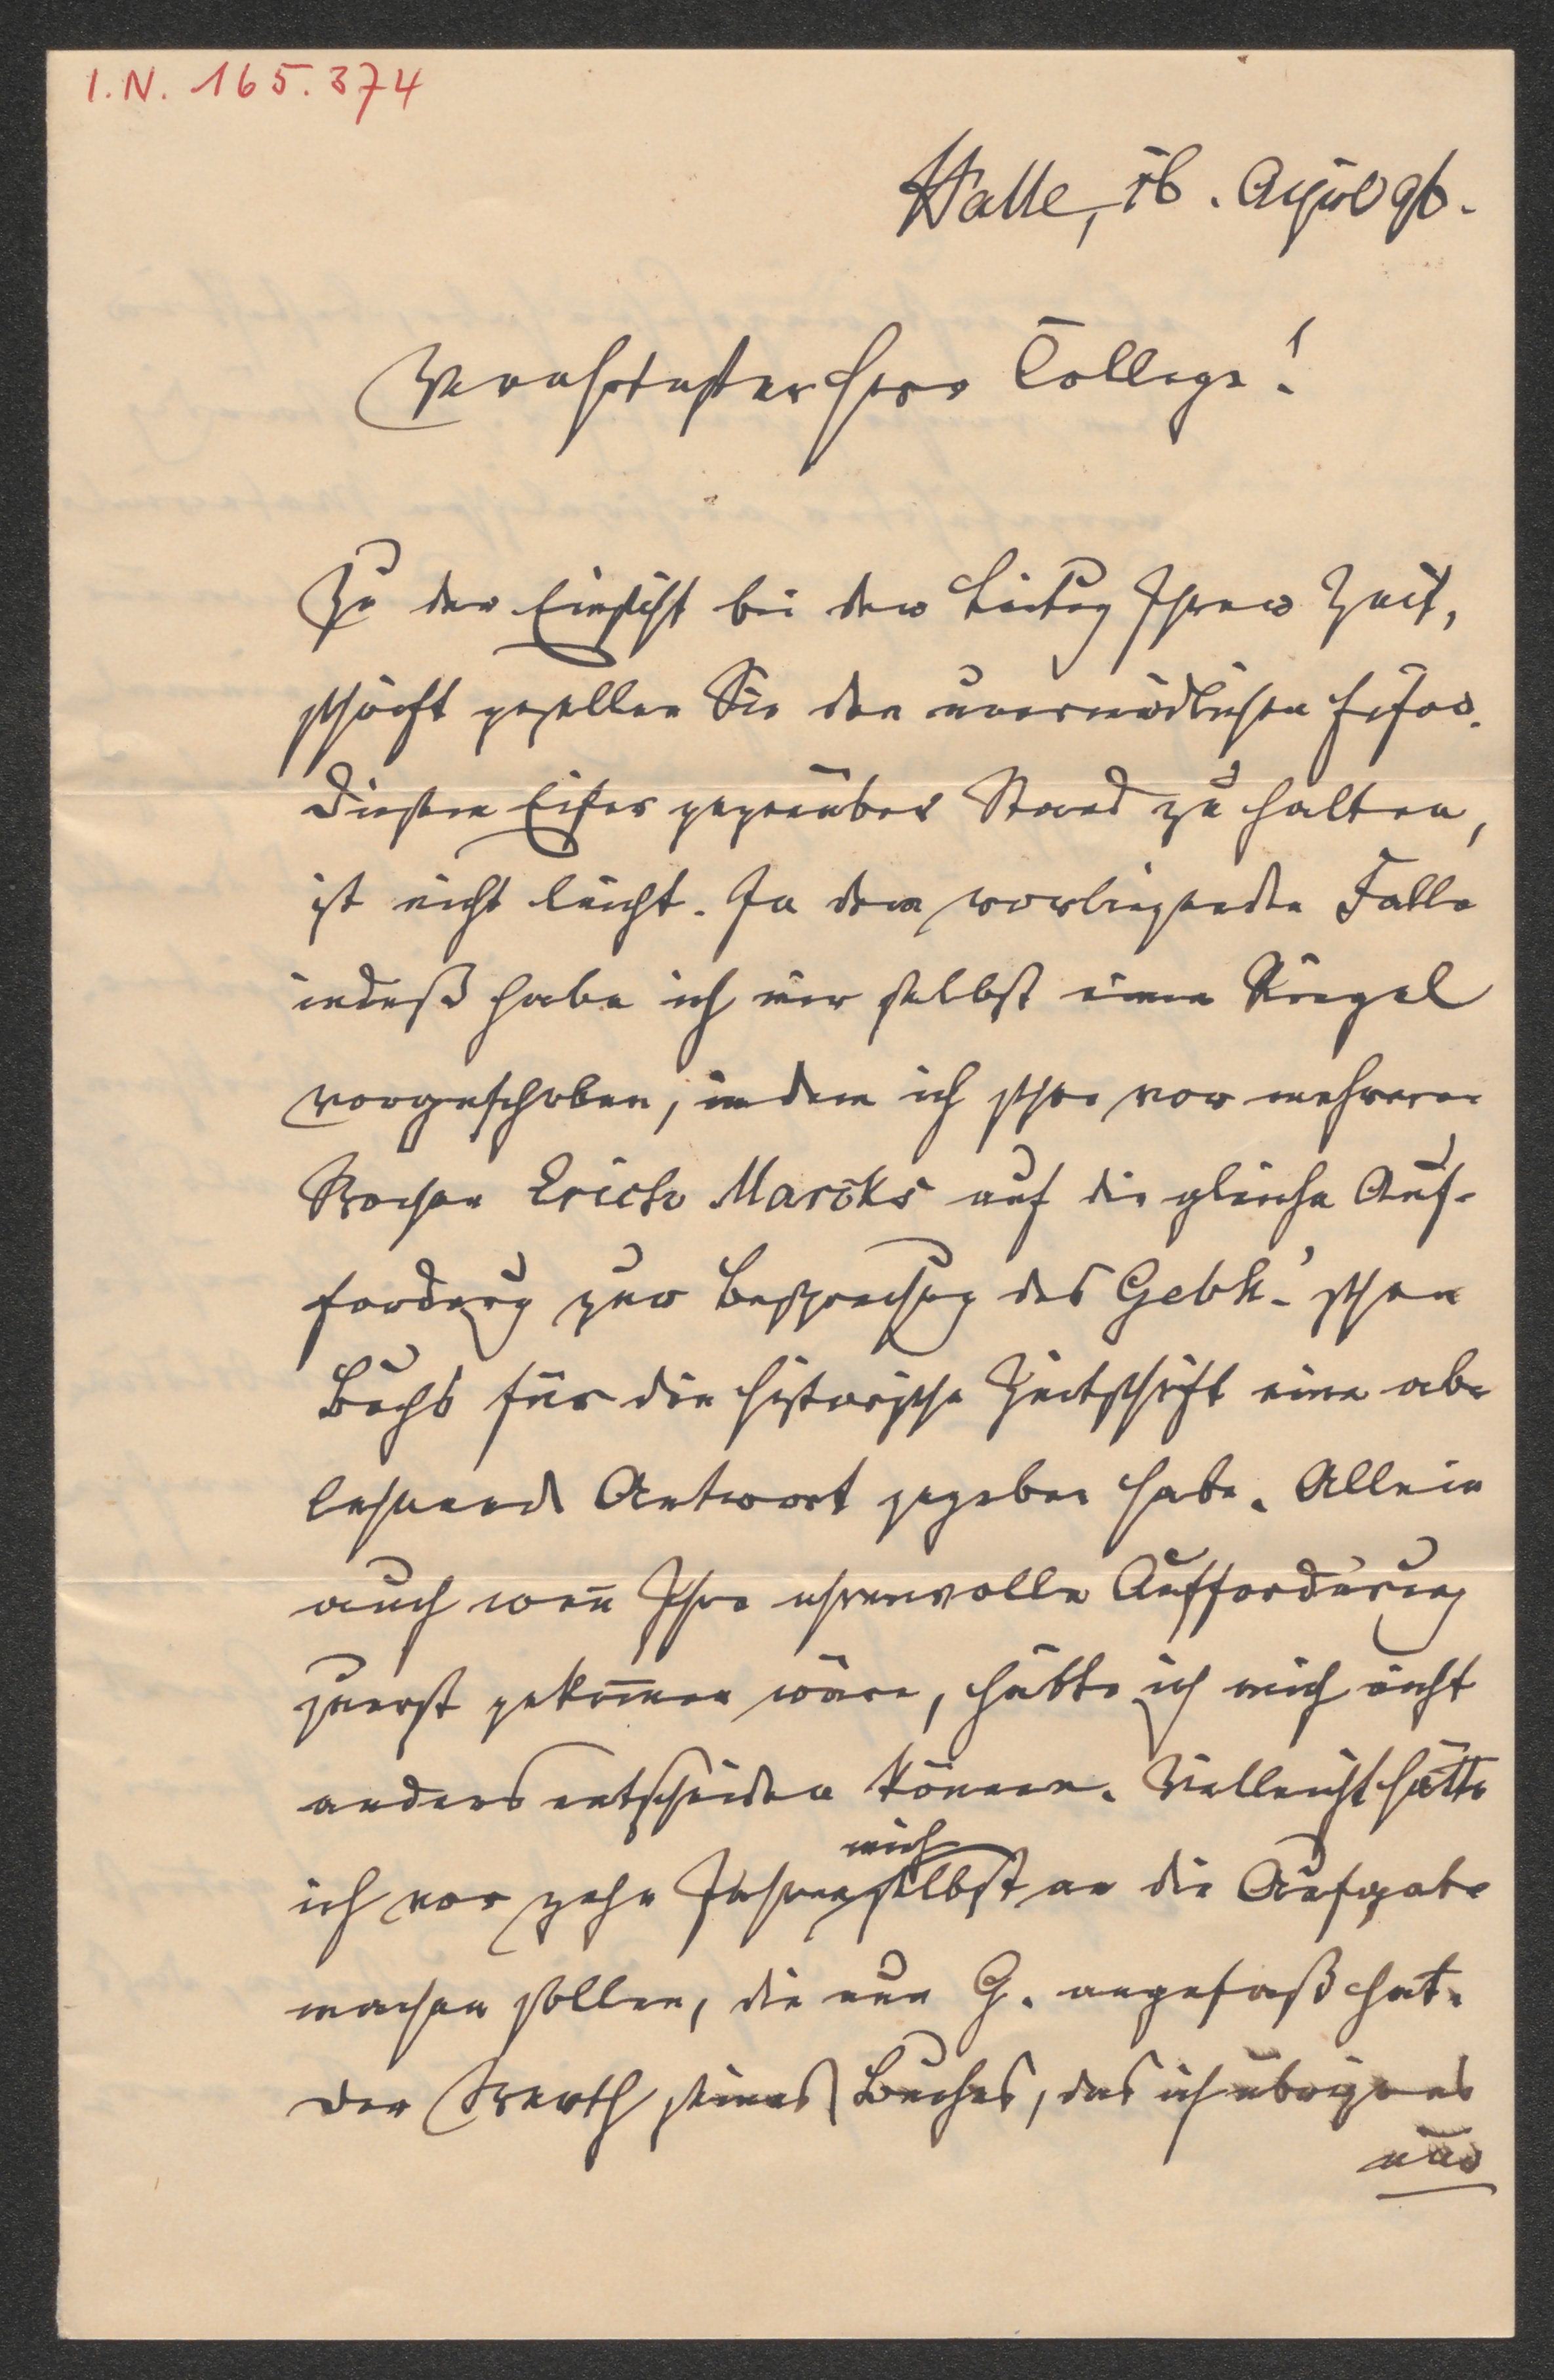 I.N. 165.374
Halle, 16. April 96.
Verehrtester Herr College!
Zu der Einsicht bei der Leitug Ihrer Zeit-
schrift gesellen Sie den unermüdlichen Eifer.
Diesem Eifer gegenüber Stand zu halten,
ist nicht leicht. In dem vorliegenden Falle
indeß habe ich mir selbst einen Riegel
vorgeschoben, indem ich schon vor mehreren
Wochen Erich Marcks auf die gleiche Auf-
forderug zur Besprechug des Gebh.'schen
Buchs für die historische Zeitschrift eine ab-
lehnende Antwort gegeben habe. Allein
auch wen̄ Ihre ehrenvolle Aufforderung
zuerst gekom̄en wäre, hätte ich mich nicht
anders entscheiden können. Vielleicht hätte
mich
ich vor zehn Jahren selbst an die Aufgabe
machen sollen, die nun G. angefaßt hat.
Der Werth seines Buches, das ich übrigens
nur